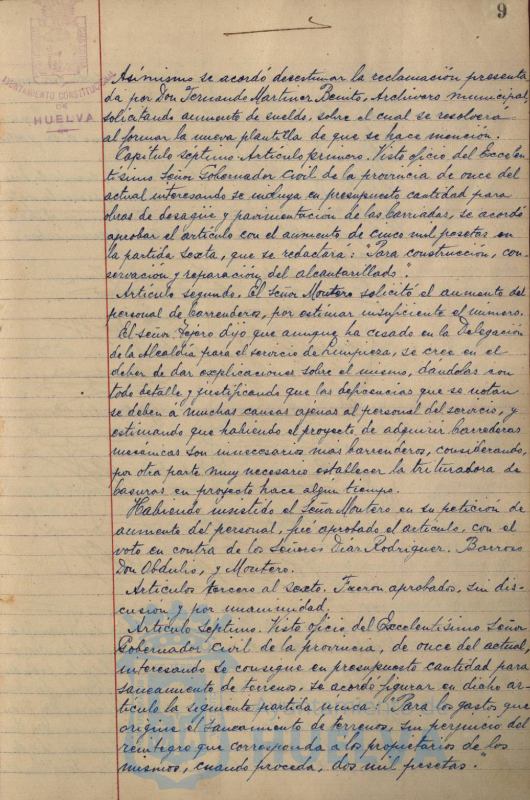 9
AYUNTAMIENTO CONSTITUCIONAL
DE
HUELVA
Asimismo se acordó desestimar la reclamación presenta-
da por Don Fernando Martinez Benito, Archivero municipal,
solicitando aumento de sueldo, sobre el cual se resolverá
al formar la nueva plantilla de que se hace mención.
Capítulo séptimo. Artículo primero. Visto oficio del Excelen-
tísimo Señor Gobernador Civil de la provincia de once del
actual interesando se incluya en presupuesto cantidad para
obras de desagüe y pavimentación de las barriadas, se acordó
aprobar el artículo con el aumento de cinco mil pesetas en
la partida sexta, que se redactará: "Para construcción, con-
servación y reparación del alcantarillado".
Artículo segundo. El Señor Montero solicitó el aumento del
personal de barrenderos, por estimar insuficiente el número.
El señor Tejero dijo que aunque ha cesado en la Delegación
de la Alcaldía para el servicio de Limpieza, se cree en el
deber de dar explicaciones sobre el mismo, dándolas con
todo detalle y justificando que las deficiencias que se notan
se deben a muchas causas ajenas al personal del servicio, y
estimando que habiendo el proyecto de adquirir barrederas
mecánicas son innecesarios más barrenderos, considerando,
por otra parte muy necesario establecer la trituradora de
basuras en proyecto hace algún tiempo.
Habiendo insistido el Señor Montero en su petición de
aumento del personal, fué aprobado el artículo, con el
voto en contra de los Señores Díaz Rodriguez, Barroso
Don Obdulio, y Montero.
Artículos tercero al sexto. Fueron aprobados, sin dis-
cusión y por unanimidad.
Artículo séptimo. Visto oficio del Excelentísimo Señor
Gobernador Civil de la provincia, de once del actual,
interesando se consigne en presupuesto cantidad para
saneamiento de terrenos, se acordó figurar en dicho ar-
tículo la siguiente partida única: "Para los gastos que
origine el saneamiento de terrenos, sin perjuicio del
reintegro que corresponda a los propietarios de los
mismos, cuando proceda, dos mil pesetas."